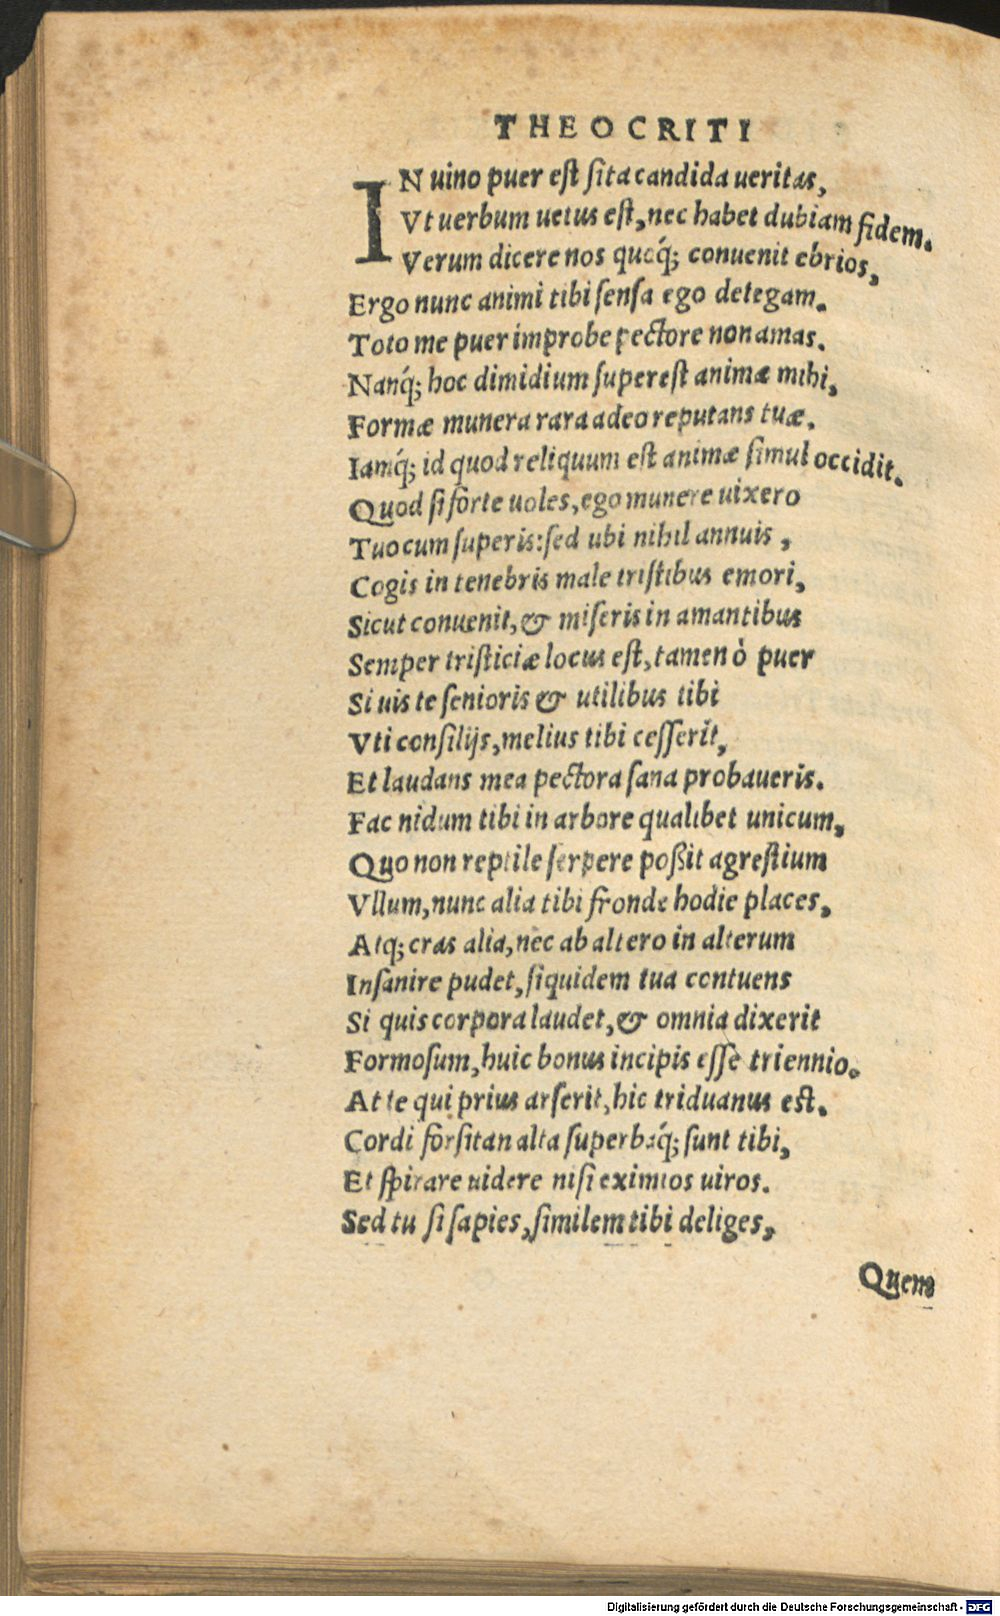 THEOCRITI
IN uino puer est sita candida ueritas,
Vt uerbum uetus est, nec habet dubiam fidem.
Verum dicere nos quoq́; conuenit ebrios,
Ergo nunc animi tibi sensa ego detegam.
Toto me puer improbe pectore non amas.
Nanq́; hoc dimidium superest animæ mihi,
Formæ munera rara adeo reputans tuæ.
Iamq́; id quod reliquum est animæ simul occidit.
Quod si forte uoles, ego munere uixero
Tuo cum superis: sed ubi nihil annuis,
Cogis in tenebris male tristibus emori,
Sicut conuenit, & miseris in amantibus
Semper tristiciæ locus est, tamen ò puer
Si uis te senioris & utilibus tibi
Vti consilijs, melius tibi cesserit,
Et laudans mea pectora sana probaueris.
Fac nidum tibi in arbore qualibet unicum,
Quo non reptile serpere poßit agrestium
Vllum, nunc alia tibi fronde hodie places,
Atq; cras alia, nec ab altero in alterum
Insanire pudet, siquidem tua contuens
Si quis corpora laudet, & omnia dixerit
Formosum, huic bonus incipis esse triennio.
At te qui prius arserit, hic triduanus est.
Cordi forsitan alta superbaq́; sunt tibi,
Et spirare uidere nisi eximios uiros.
Sed tu si sapies, similem tibi deliges,
Quem
Digitalisierung gefördert durch die Deutsche Forschungsgemeinschaft - DFG